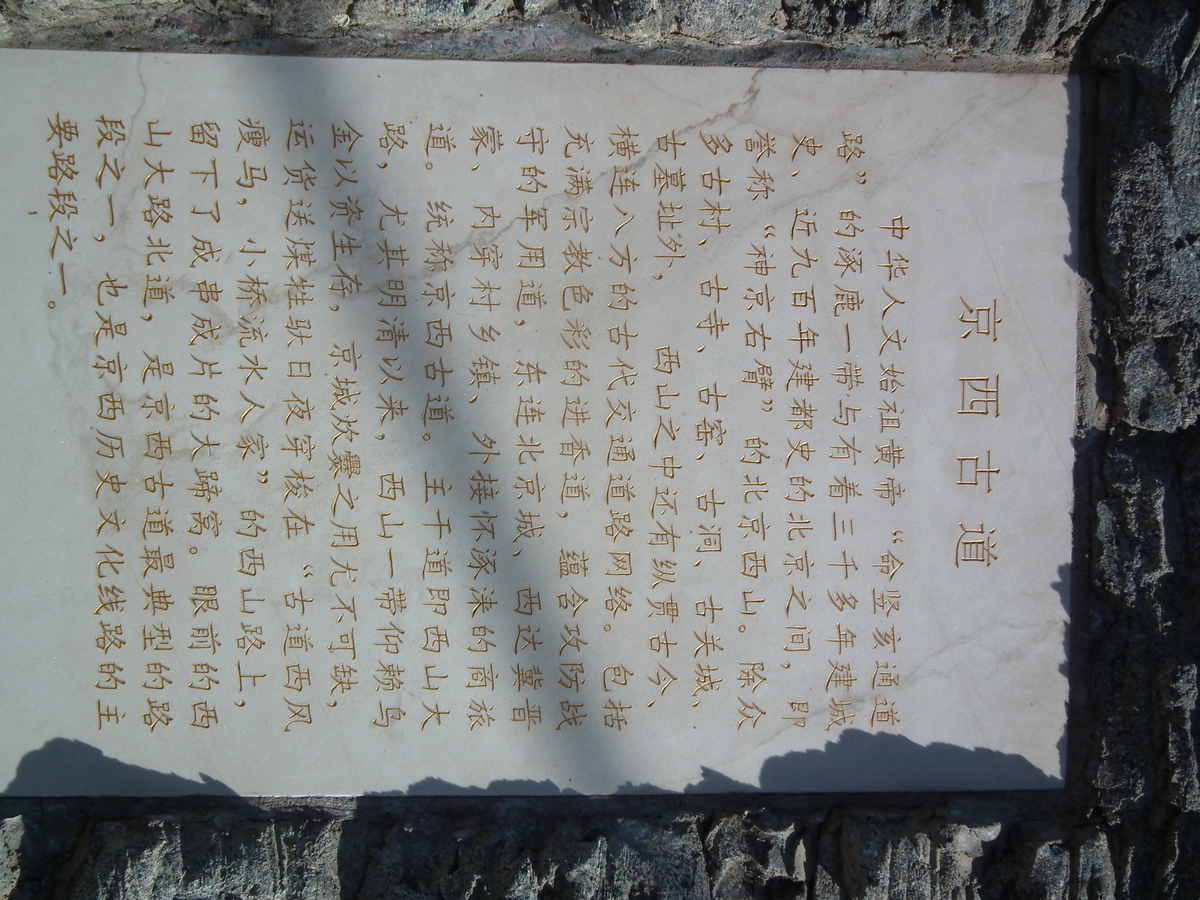 京西古道
中华人文始祖黄帝“命竖亥通道
路”的涿鹿一带与有着三千多年建城
史、近九百年建都史的北京之间，即
誉称“神京右臂”的北京西山。除众
多古村、古寺、古窑、古洞、古关城、
古墓址外，西山之中还有纵贯古今、
横连八方的古代交通道路网络。包括
充满宗教色彩的进香道，蕴含攻防战
守的军用道，东连北京城、西达冀晋
蒙、内穿村乡镇、外接怀涿涞的商旅
道。统称京西古道。主干道即西山大
路，尤其明清以来，西山一带仰赖乌
金以资生存，京城炊爨之用尤不可缺，
运货送煤牲驮日夜穿梭在“古道西风
瘦马，小桥流水人家”的西山路上，
留下了成串成片的大蹄窝。眼前的西
山大路北道，是京西古道最典型的路
段之一，也是京西历史文化线路的主
要路段之一。